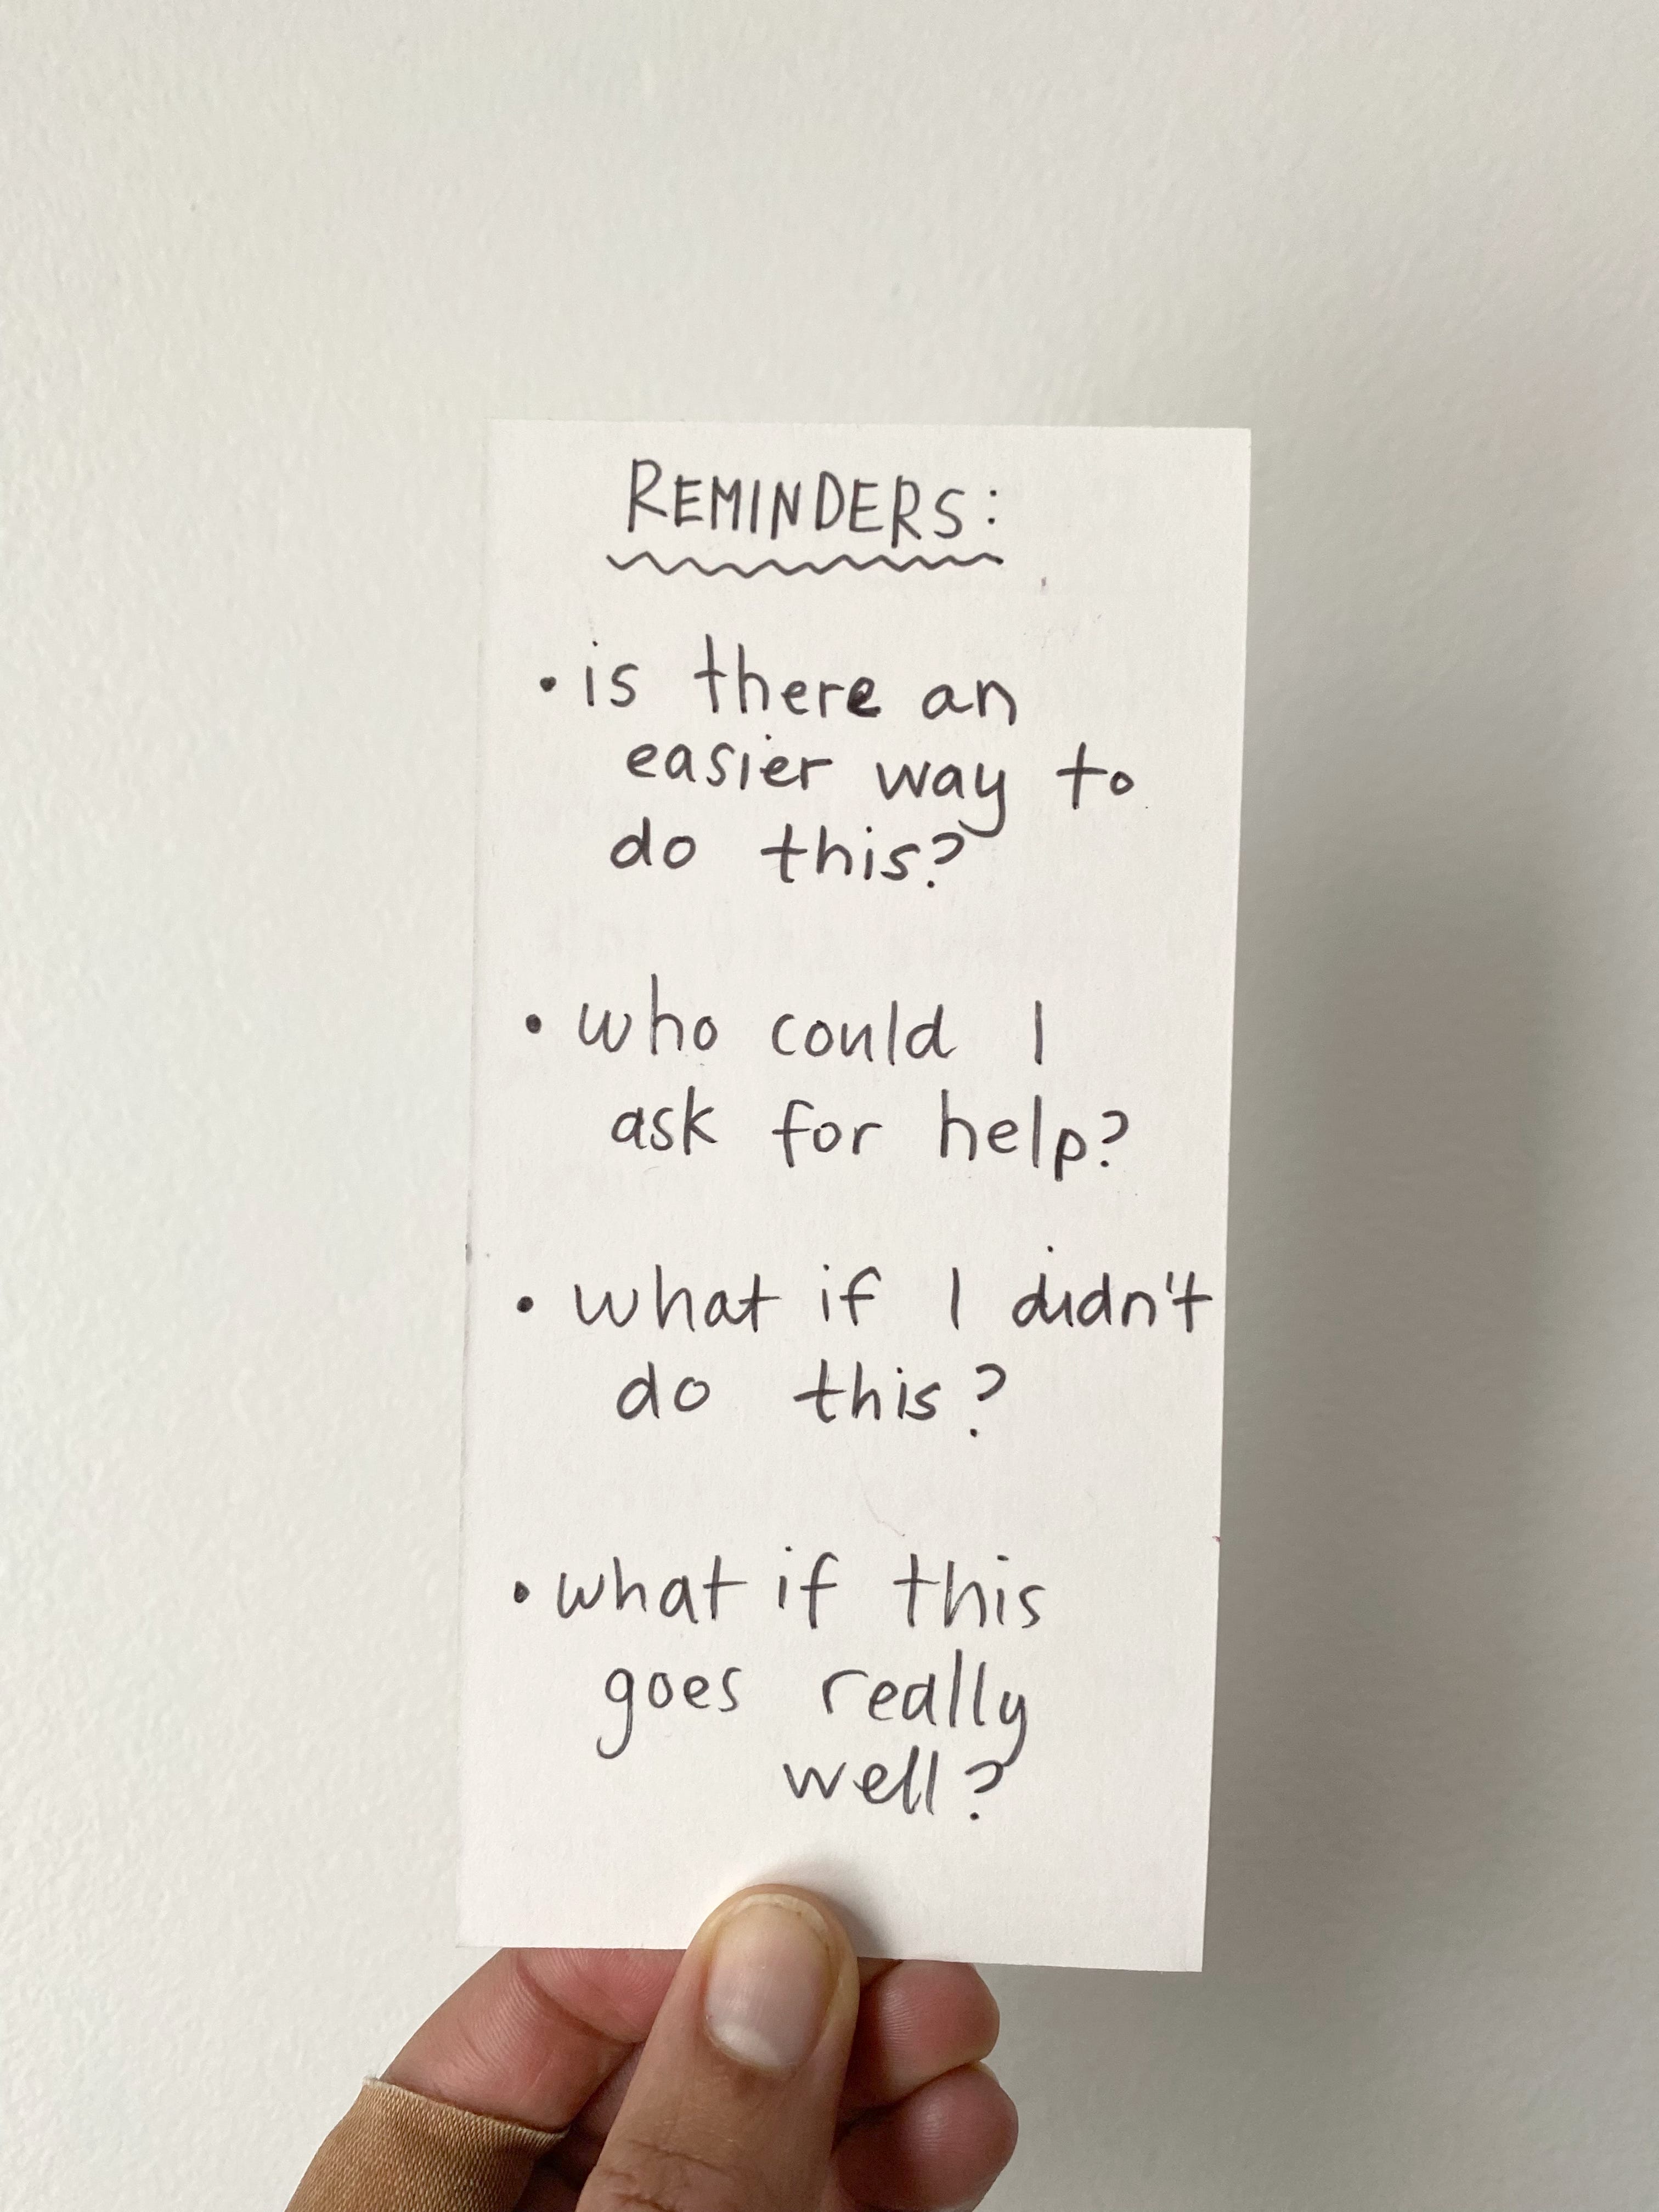 REMINDERS:
• is there an
easier way to
do this?
• who could I
ask for help?
• what if I didn't
do this?
• what if this
goes really
well?